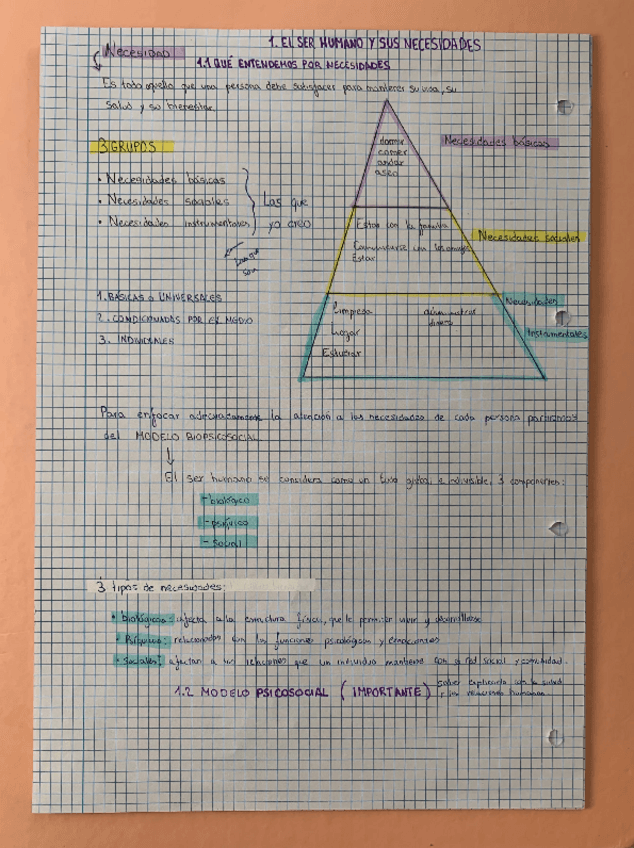 1. EL SER HUMANO Y SUS NECESIDADES
NECESIDAD
1.1 QUÉ ENTENDEMOS POR NECESIDADES
Es todo aquello que una persona debe satisfacer para mantener su vida, su
salud y su bienestar.
3 GRUPOS
• Necesidades básicas
• Necesidades sociales
• Necesidades instrumentales
Las que
yo creo
Las que
son
dormir
comer
andar
aseo
Necesidades básicas
Estar con la familia
Comunicarse con los amigos
Estar
Necesidades sociales
Limpieza
Hogar
Estudiar
dinero
Necesidades
Instrumentales
1. BÁSICAS o UNIVERSALES
2. CONDICIONADAS POR EL MEDIO
3. INDIVIDUALES
Para enfocar adecuadamente la atención a las necesidades de cada persona partiremos
del MODELO BIOPSICOSOCIAL
El ser humano se considera como un todo global e indivisible, 3 componentes:
- biológico
- psíquico
- social
3 tipos de necesidades:
• biológicas: afecta a la estructura física, que le permiten vivir y desarrollarse
• Psíquicas: relacionadas con las funciones psicológicas y emociones
• Sociales: afectan a las relaciones que un individuo mantiene con su red social y comunidad.
1.2 MODELO PSICOSOCIAL (IMPORTANTE)
saber explicarlo con la salud
y las relaciones humanas